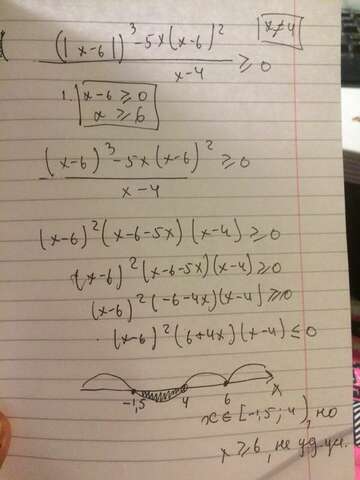 (|x-6|)³-5x(x-6)² / x-4 ≥ 0
x≠4
1. x-6 ≥ 0
x ≥ 6
(x-6)³-5x(x-6)² / x-4 ≥ 0
(x-6)²(x-6-5x)(x-4) ≥ 0
(x-6)²(x-6-5x)(x-4) ≥ 0
(x-6)²(-6-4x)(x-4) ≥ 0
(x-6)²(6+4x)(x-4) ≤ 0
-1,5 4 6 x
x ∈ [-1,5; 4), но
x ≥ 6, не уд. ул.